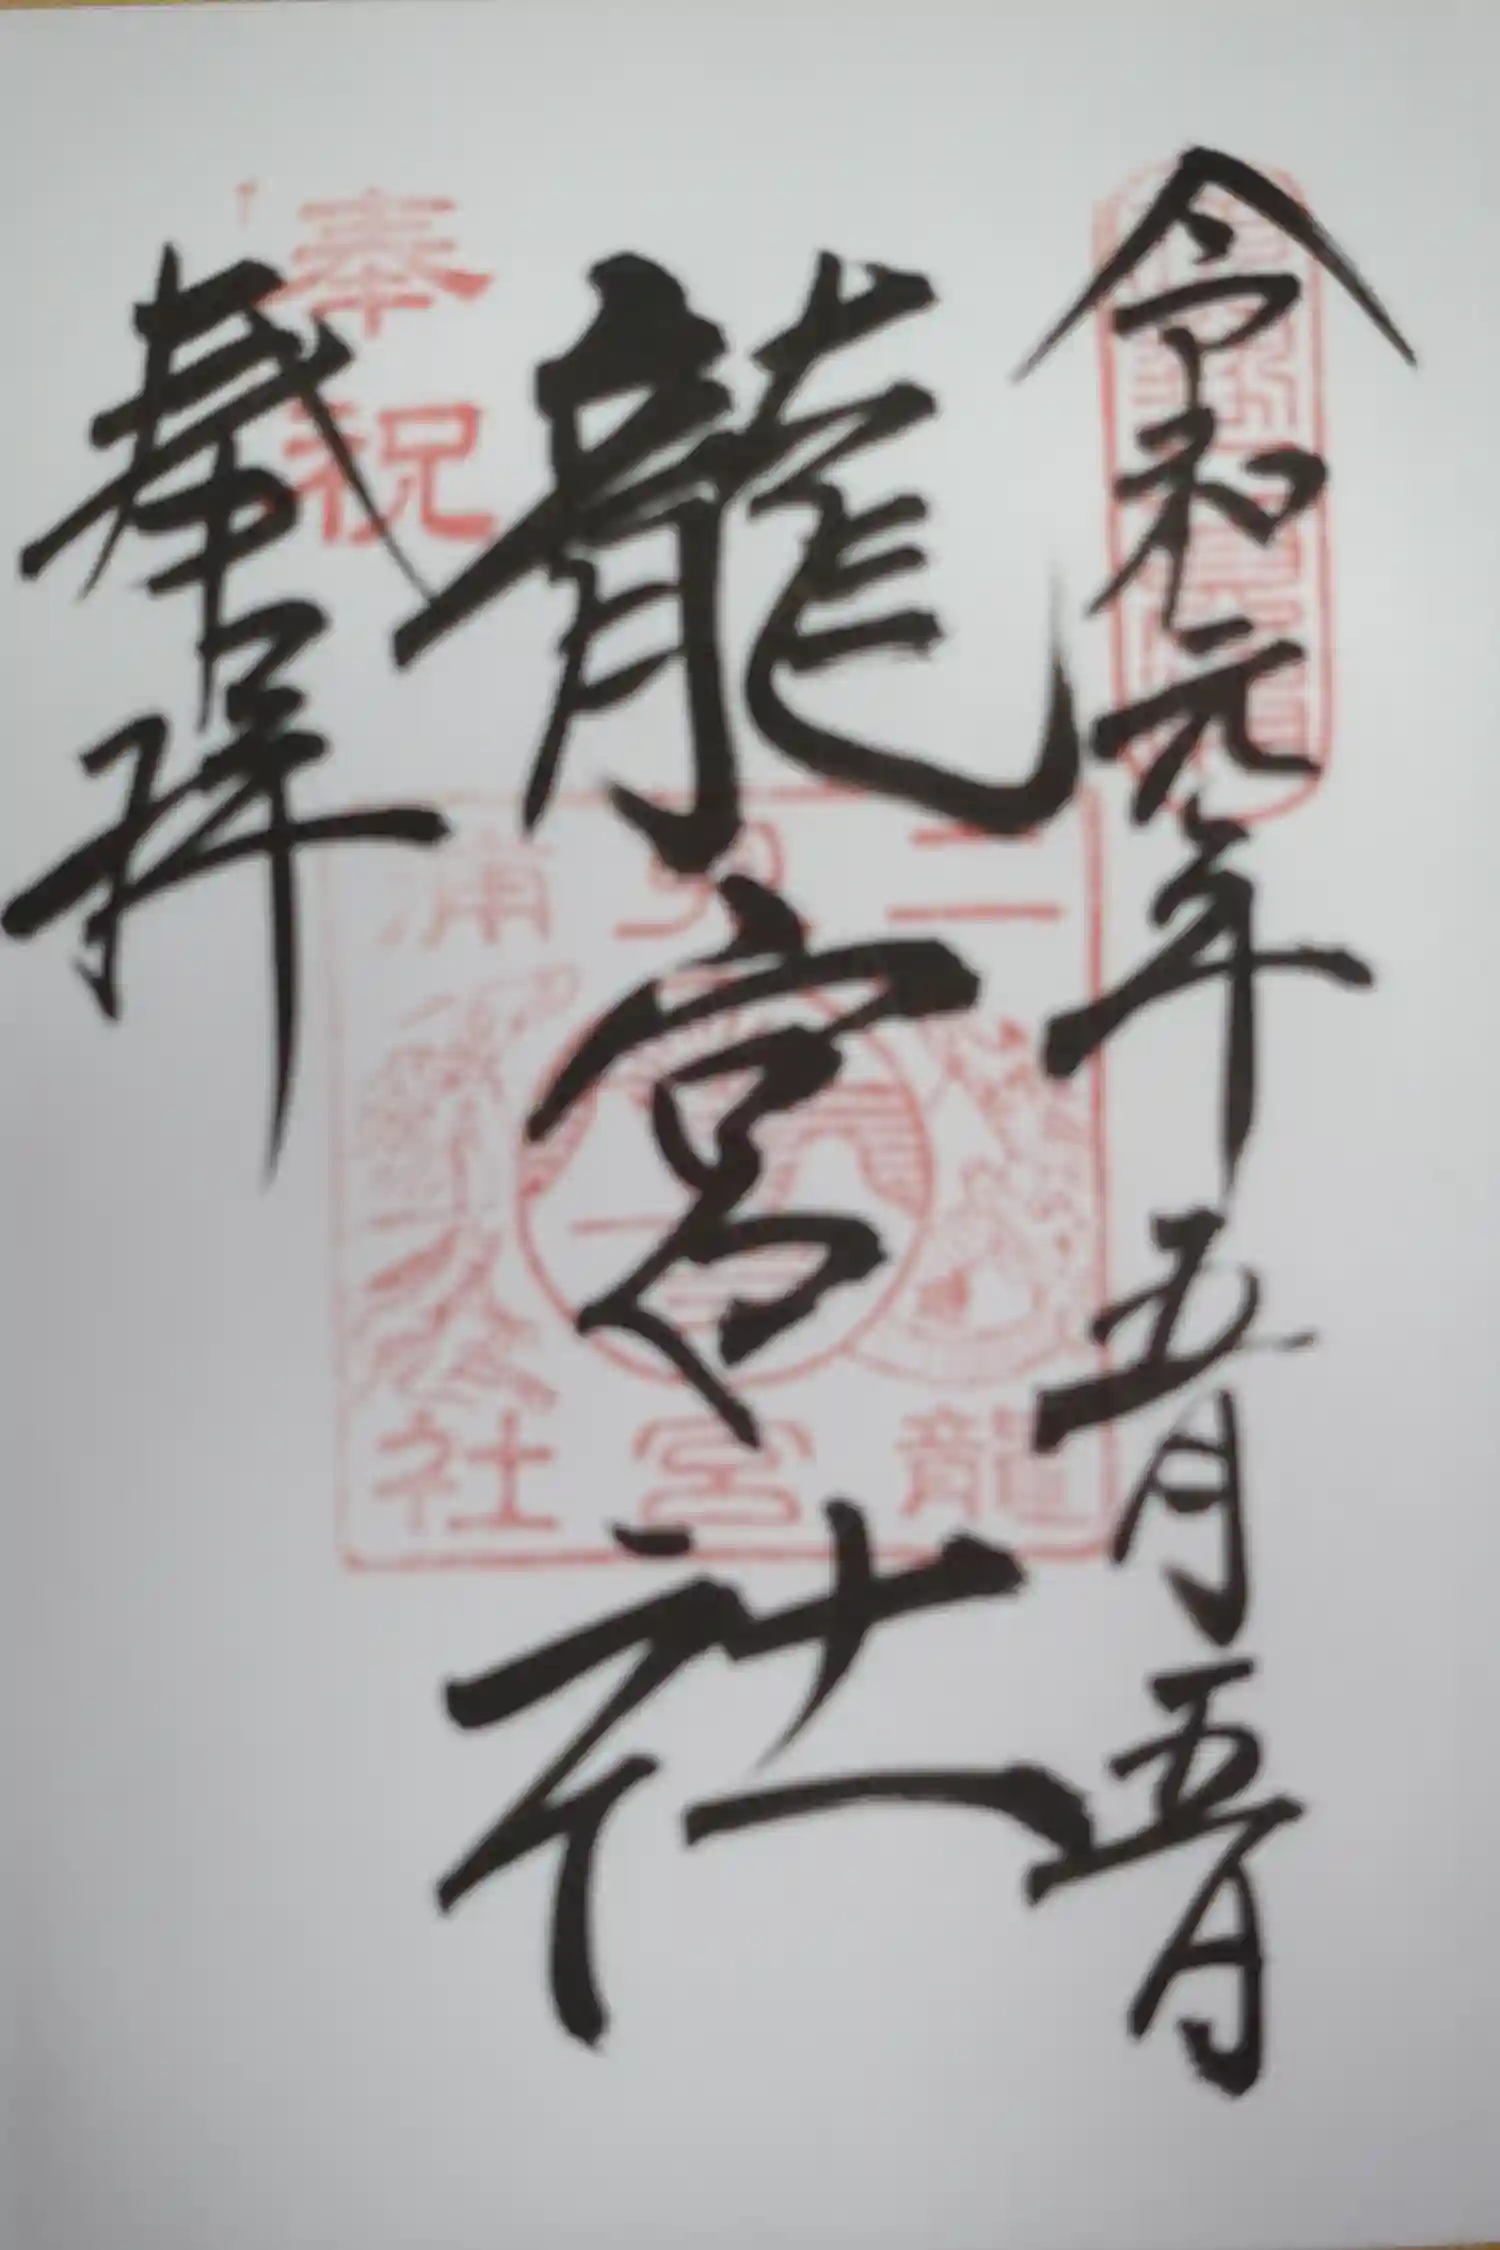 令和元年五月五日
龍宮社
奉拝
奉祝
二見浦
龍宮社